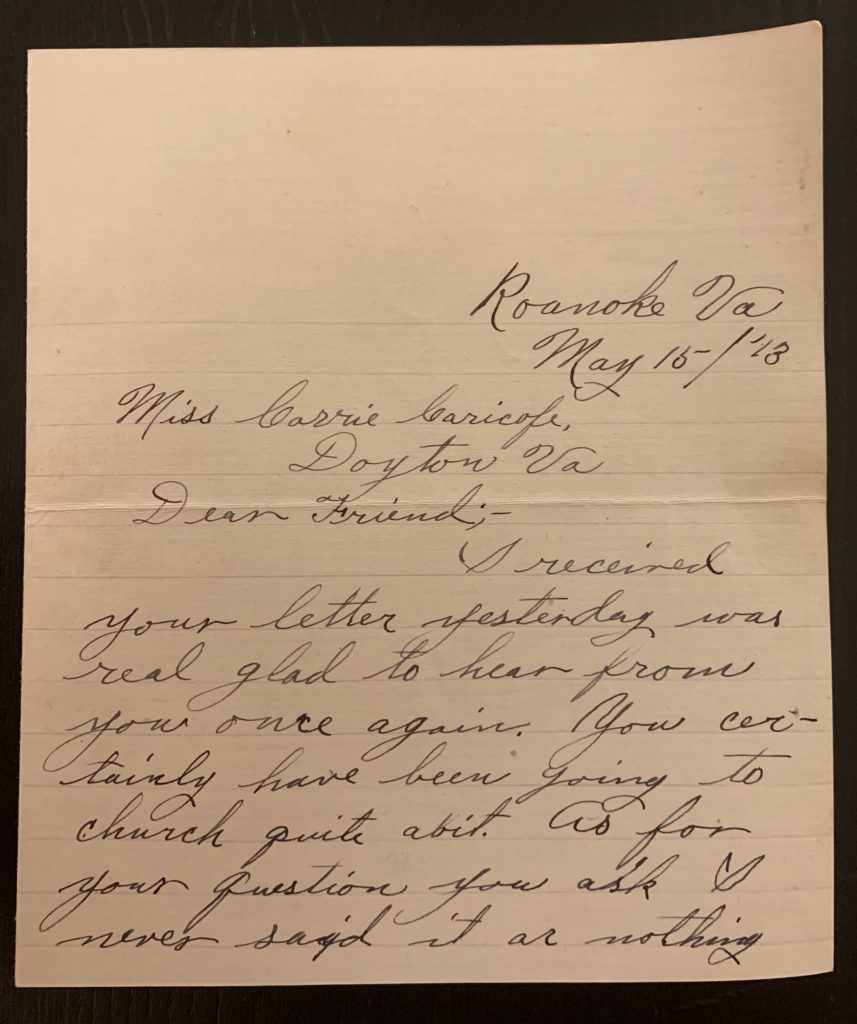 Roanoke Va
May 15-/'13
Miss Carrie Caricofe,
Dayton Va
Dear Friend;-
I received
your letter yesterday was
real glad to hear from
you once again. You cer-
tainly have been going to
church quite abit. As for
your question you ask I
never said it or nothing